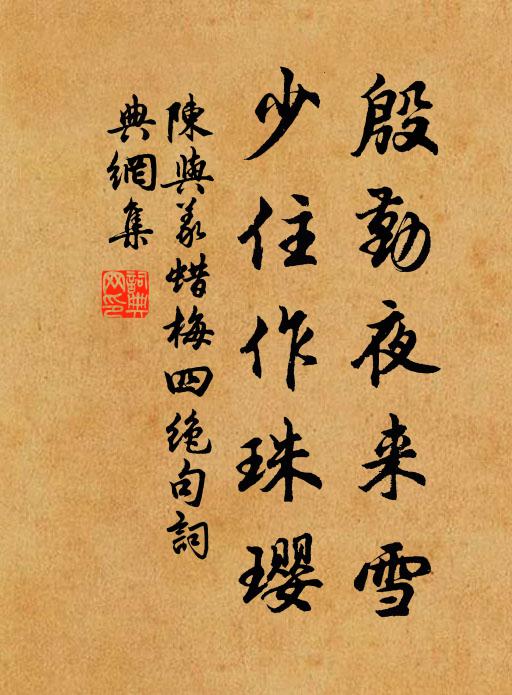 殷勤夜来雪
少住作珠璎
陳與義蜡梅四绝句詞
典網集
詞典网印